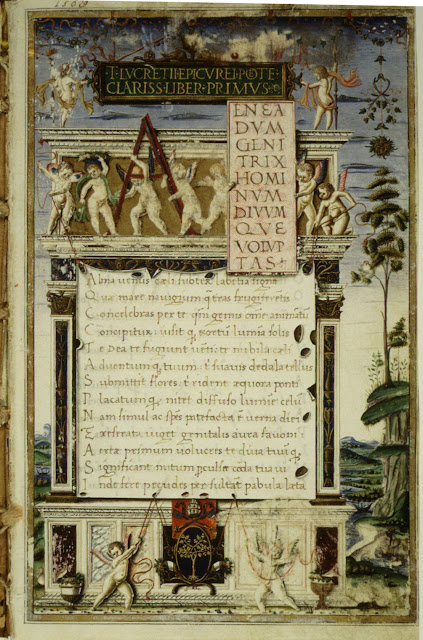 T·LVCRETII·EPICVREI·POTE·
CLARISS·LIBER·PRIMVS·
A
ENEA
DVM
GENI
TRIX
HOMI
NVM
DIVVM
QVE
VOLVP
TAS
Alma venus cæli subter labentia signa
Quæ mare navigerum q̃ tras frugiferentis
Concelebras per te qm̃ genus om̃e animantũ
Concipitur visit q; exortũ lumina solis
Te Dea te fugiunt venti te nubila cæli
Adventum q; tuum t suavis dedala tellus
Submittit flores t rident æquora ponti
Placatum q; nitet diffuso lumine celũ
Nam simul ac spes patefacta ẽ verna diei
Exferata viget genitalis aura favoni
Aeriæ primum volucres te diva tuũ q;
Significant initum pculsæ corda tua vi
Inde feræ pecudes per sultant pabula læta